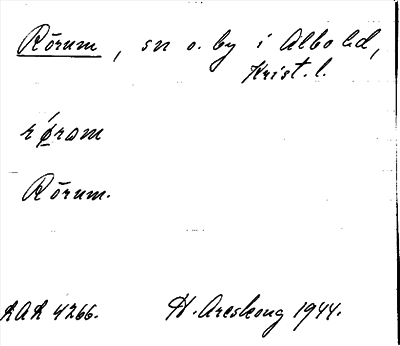 Rörum, sn o. by i Albo hd,
Krist. l.
rǿ̱ram
Rörum.
RAÄ 4266. H. Areskoug 1944.